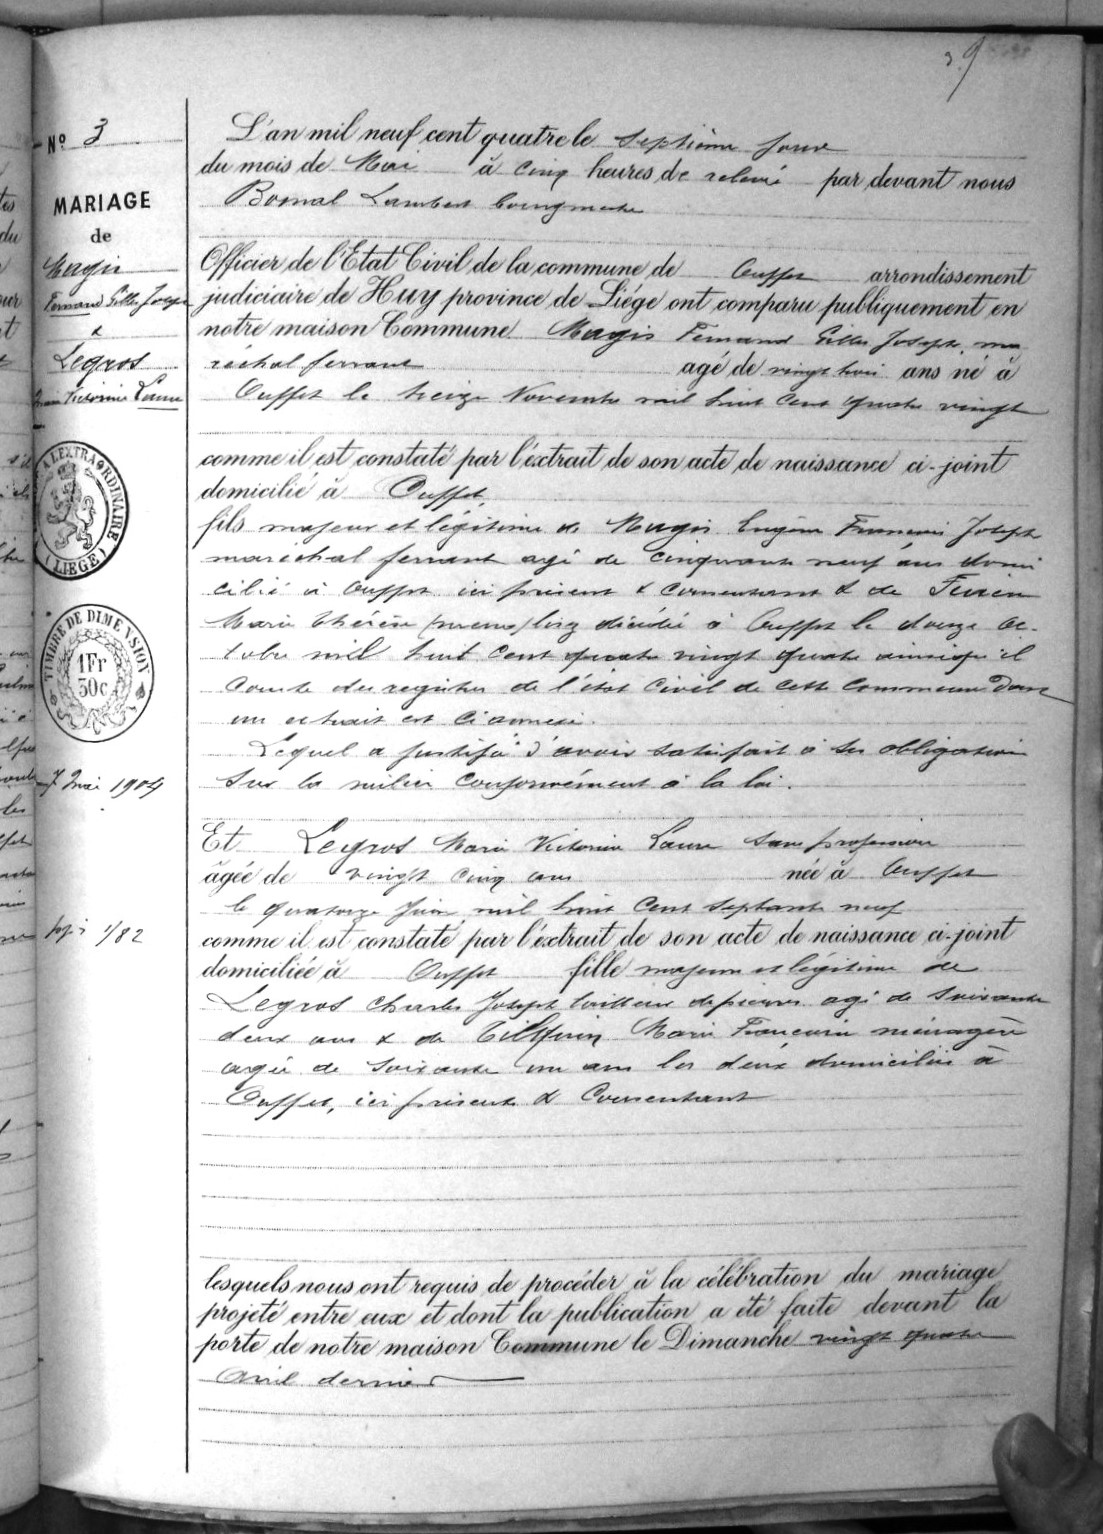 39
Nº 3
MARIAGE
de
Magis
Fernand Gilles Joseph
&
Legros
Marie Victorine Laure
A L'EXTRAORDINAIRE
(LIEGE)
TIMBRE DE DIMENSION
1Fr
30c
7 Mai 1904
1/82
L'an mil neuf cent quatre le septième jour
du mois de Mai à cinq heures de relevée par devant nous
Bomal Lambert bourgmestre
Officier de l'Etat Civil de la commune de Ouffet arrondissement
judiciaire de Huy province de Liége ont comparu publiquement en
notre maison Commune Magis Fernand Gilles Joseph, ma
réchal ferrant agé de vingt trois ans né à
Ouffet le treize Novembre mil huit cent quatre vingt
comme il est constaté par l'extrait de son acte de naissance ci-joint
domicilié à Ouffet,
fils majeur et légitime de Magis Eugène François Joseph
maréchal ferrant agé de cinquante neuf ans domi
cilié à Ouffet ici présent & consentant & de
Marie Thérèse décédée à Ouffet le douze oc-
tobre mil huit cent quatre vingt quatre ainsi qu'il
conste des registres de l'état civil de cette commune dont
un extrait est ci annexé.
Lequel a justifié d'avoir satisfait à ses obligations
sur la milice conformément à la loi.
Et Legros Marie Victorine Laure sans profession
âgée de vingt cinq ans née à Ouffet
le quatorze Juin mil huit cent septante neuf
comme il est constaté par l'extrait de son acte de naissance ci-joint
domiciliée à Ouffet fille majeure et légitime de
Legros Charles Joseph tailleur de pierres agé de soixante
deux ans & de Tilkin Marie Françoise ménagère
agée de soixante un ans les deux domiciliés à
Ouffet, ici présents & consentant
lesquels nous ont requis de procéder à la célébration du mariage
projeté entre eux et dont la publication a été faite devant la
porte de notre maison Commune le Dimanche vingt quatre
Avril dernier